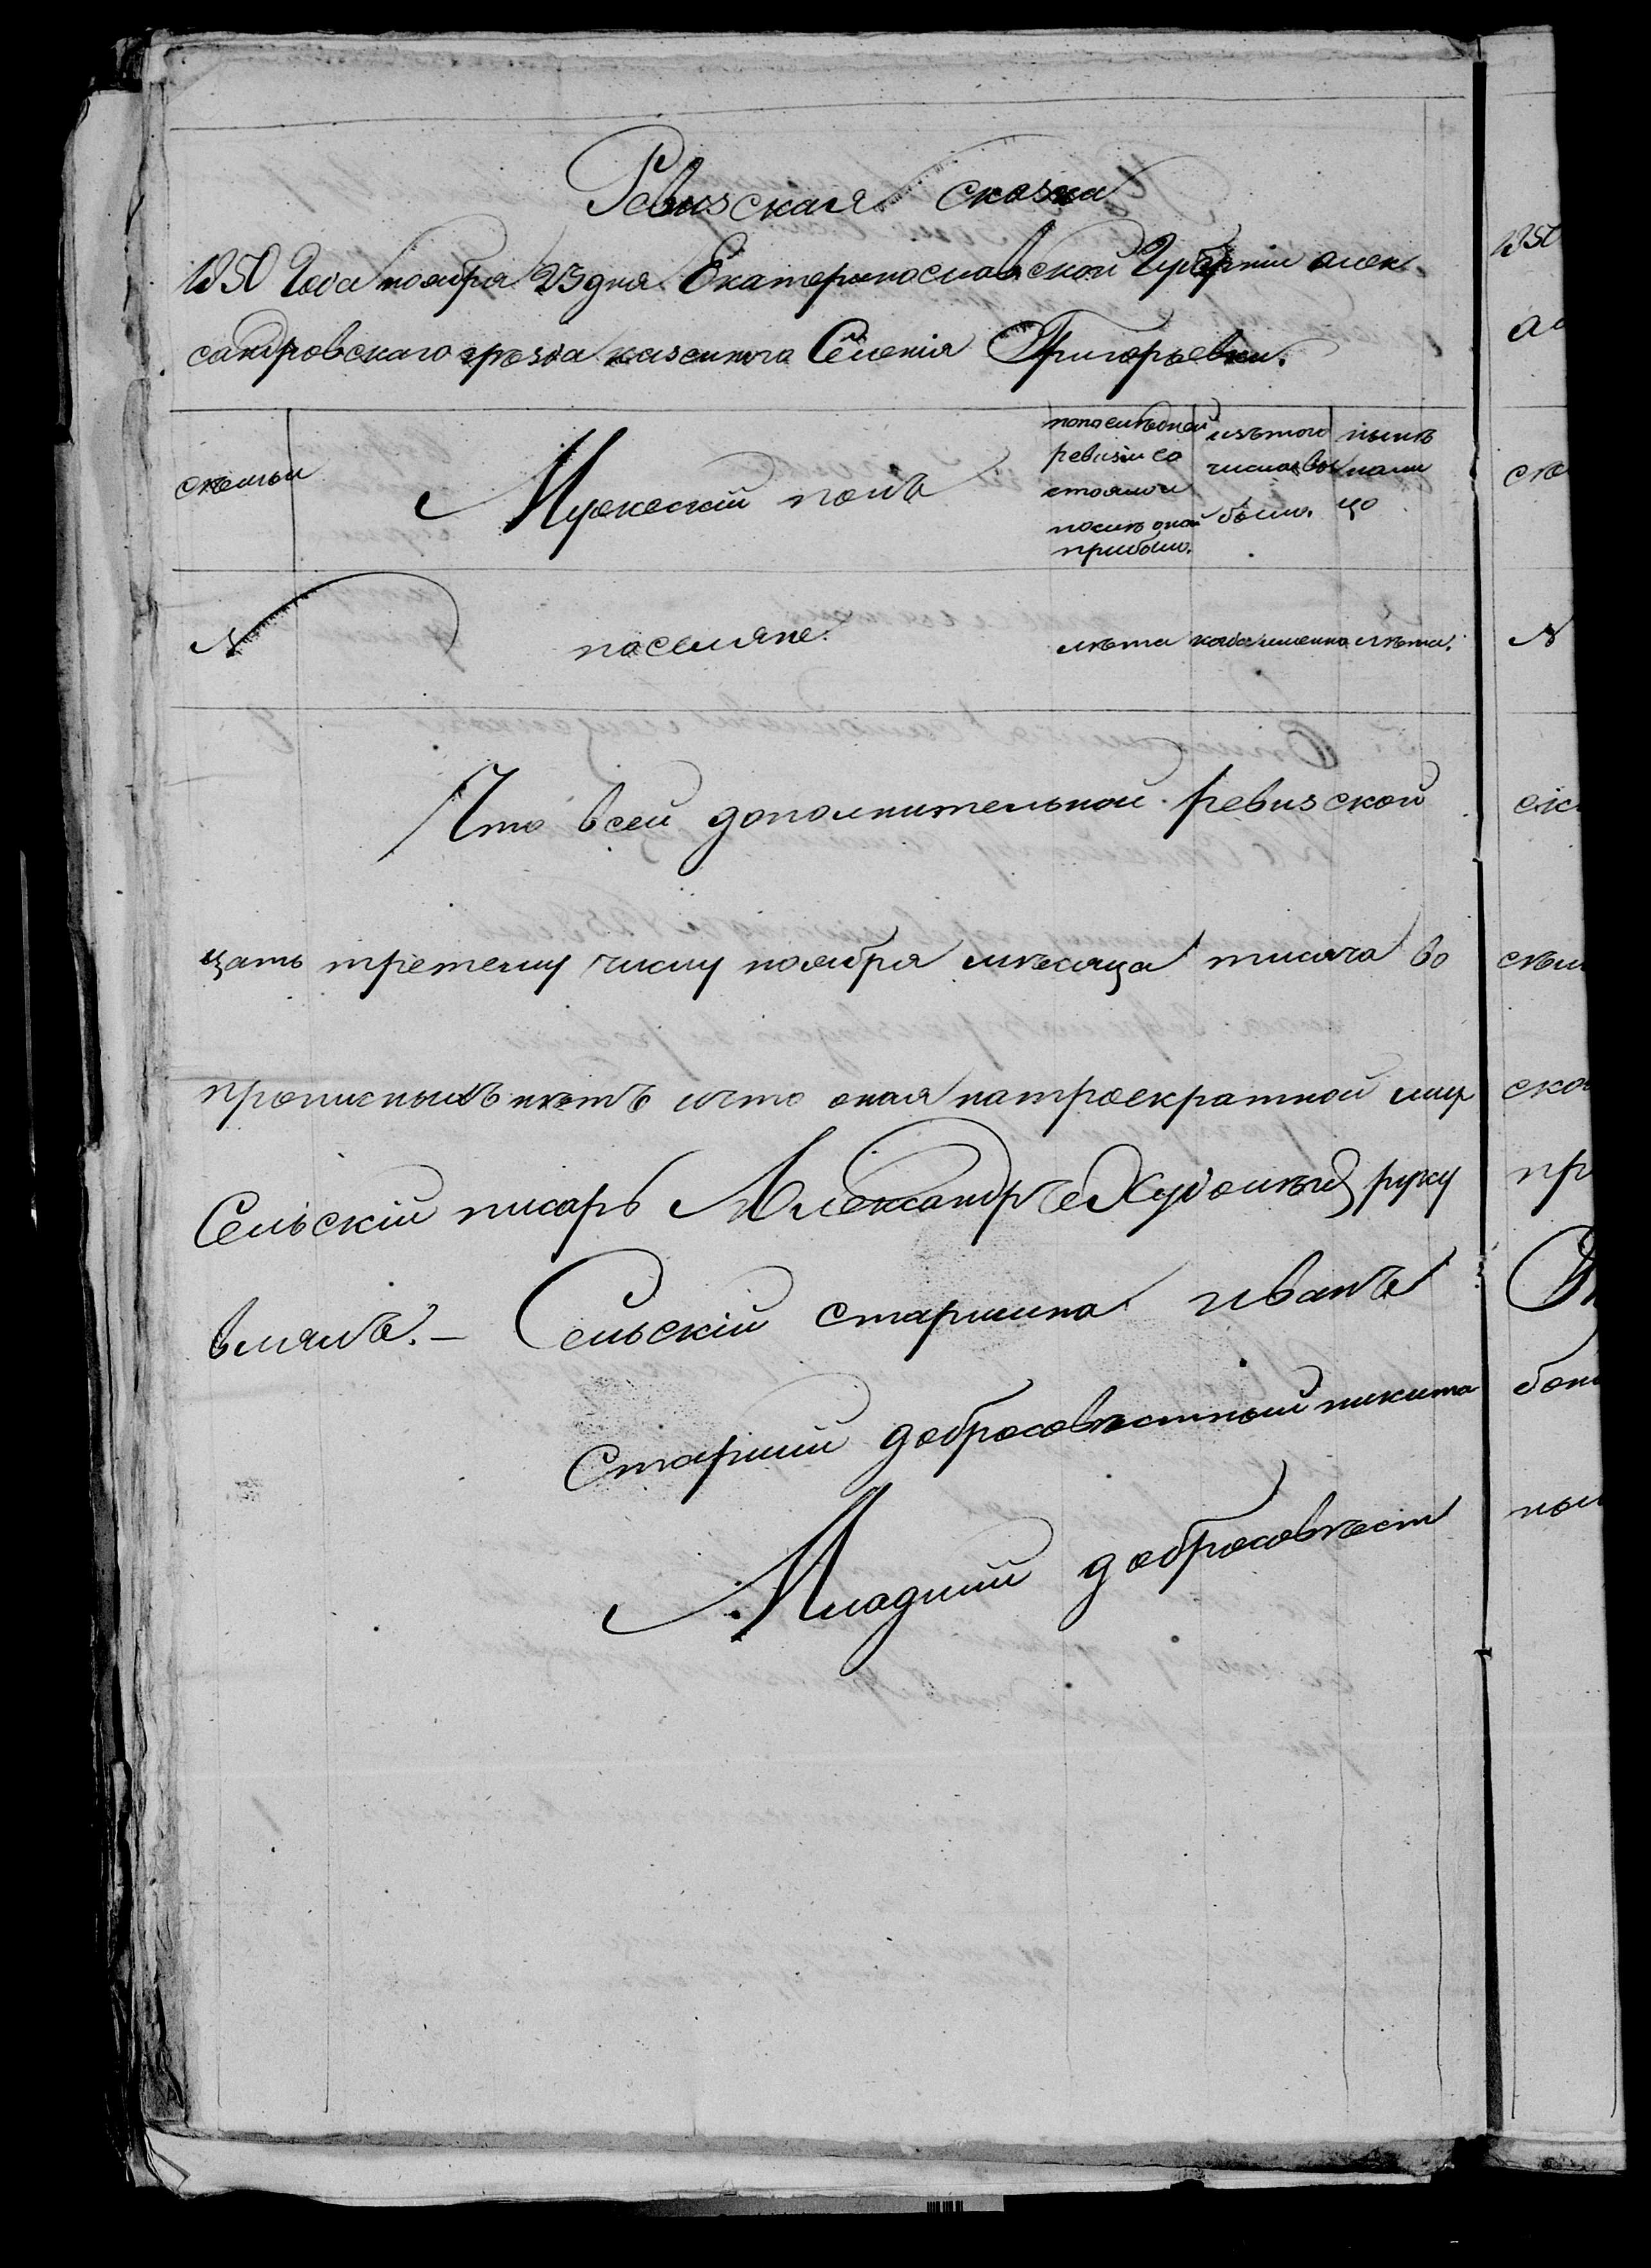 Ревизская сказка
1850 Года ноября 23 дня Екатеринославской Губернии алек
сандровского уезда казенного Селенія Григорьевки.
семьи
Мужескій полъ
по последней
ревизіи со
стояло и
после оной
прибыло.
изътого
числа вы
было.
ныне
нали
цо
№
поселяне.
лета
когда именно
лета.
Что всей дополнительной ревизской
цать третему числу ноября месяца тисяча во
прописныхъ нетъ ичто оная натроекратной мир
Сельскій писарь Александръ руку
влялъ. — Сельскій старшина иванъ
Старший добросовестный никита
Младший добросовест
1850
ал
се
№
ска
сказ
пр
ный